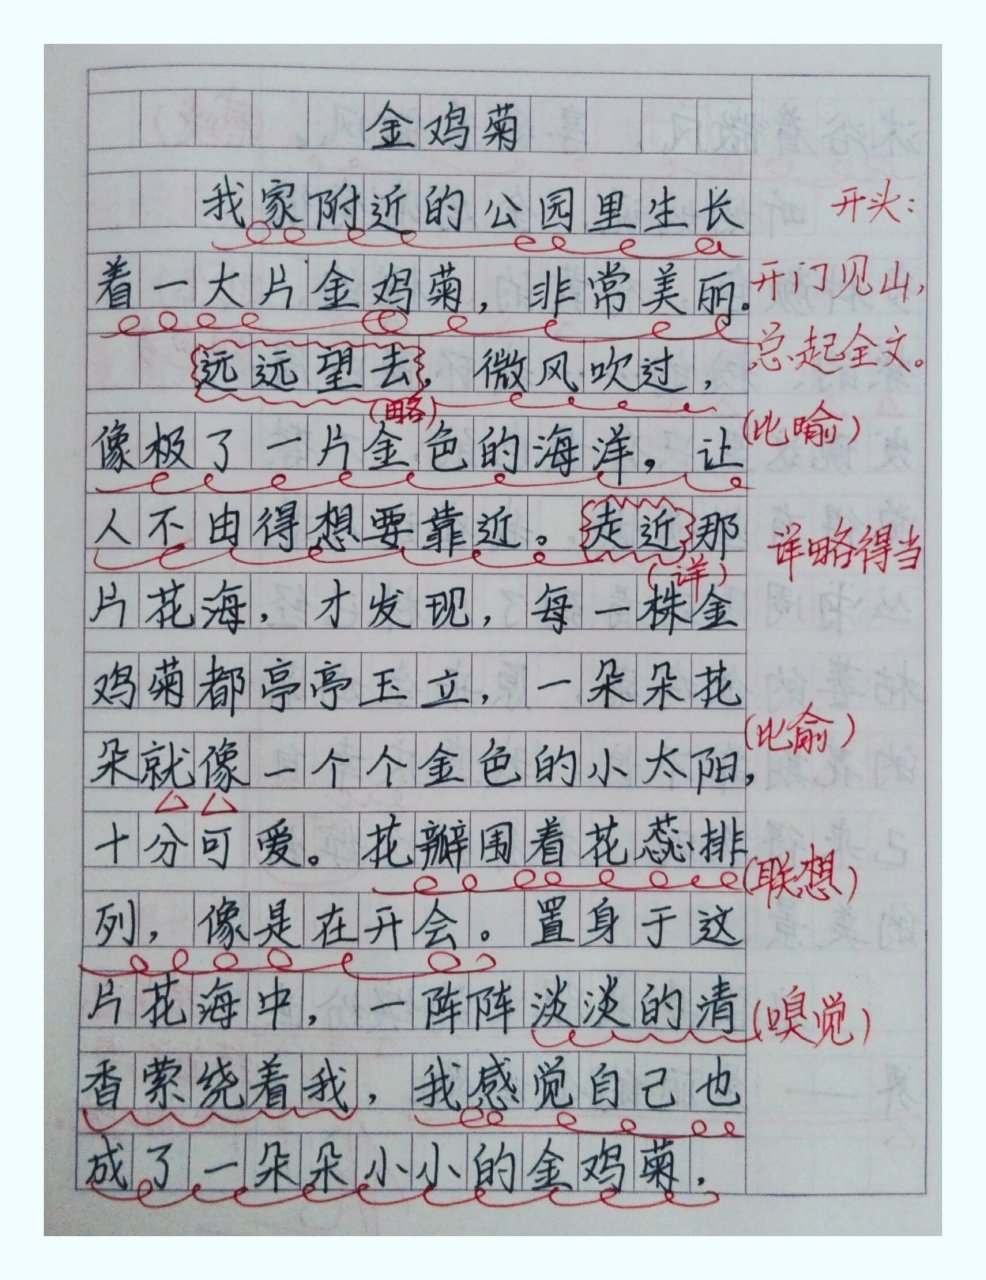 金鸡菊
我家附近的公园里生长
开头：
着一大片金鸡菊，非常美丽。
开门见山，
总起全文。
远远望去，微风吹过，
(略)
像极了一片金色的海洋，让
(比喻)
人不由得想要靠近。走近那
详略得当
(详)
片花海，才发现，每一株金
鸡菊都亭亭玉立，一朵朵花
(比俞)
朵就像一个个金色的小太阳，
十分可爱。花瓣围着花蕊排
(联想)
列，像是在开会。置身于这
片花海中，一阵阵淡淡的清
(嗅觉)
香萦绕着我，我感觉自己也
成了一朵朵小小的金鸡菊．